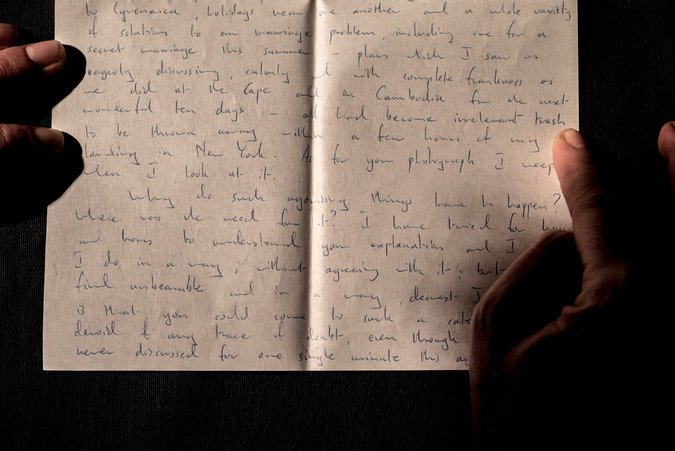 to Cyrenaica, holidays near one another and a wide variety
of solutions to our marriage problem, including one for a
secret marriage this summer – plans which I saw us
eagerly discussing, calmly and with complete frankness as
we did at the Cape and in Cambodia for the next
wonderful ten days – all had become irrelevant trash
to be thrown away within a few hours of my
landing in New York. As for your photograph I weep
when I look at it.
Why do such agonising things have to happen?
Where was the need for it? I have tried for hours
and hours to understand your explanation and I
I do in a way, without agreeing with it; but
find unbearable and in a way, dearest I
is that you could come to such a cate
devoid of any trace of doubt, even though
never discussed for one single minute this ag